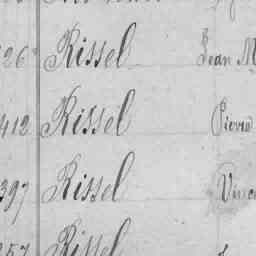 26 Rissel Jean M
412 Rissel Pierre
397 Rissel Vince
357 Rissel